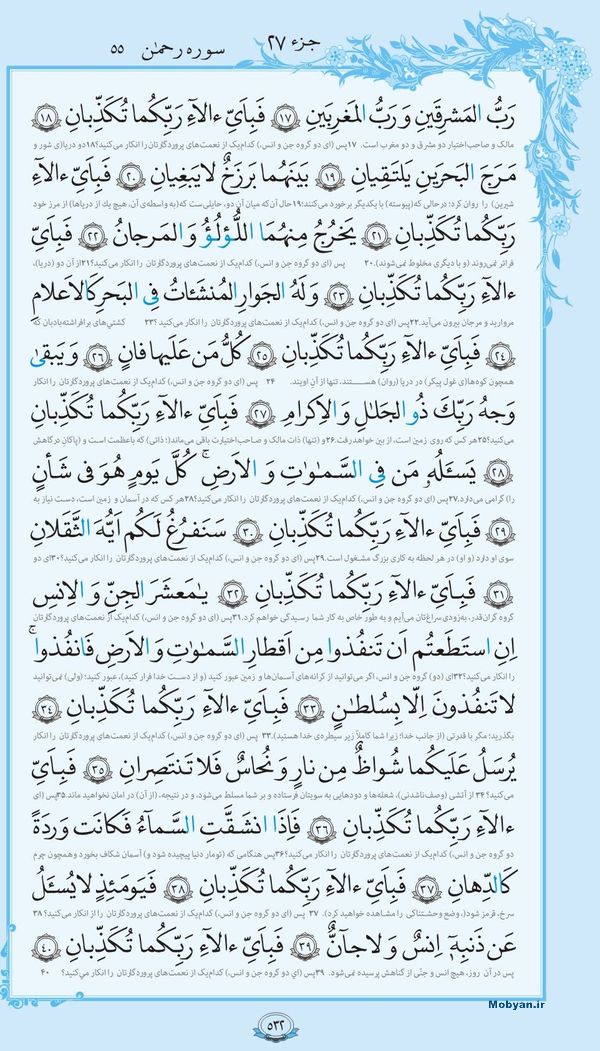 جزء ۲۷ سوره رحمٰن ۵۵
رَبُّ المَشرِقَینِ وَ رَبُّ المَغرِبَینِ ﴿۱۷﴾ فَبِاَیِّ ءالآءِ رَبِّکُما تُکَذِّبانِ ﴿۱۸﴾
مالک و صاحب‌اختیار دو مشرق و دو مغرب است. ۱۷پس (ای دو گروه جن و انس،) کدام‌یک از نعمت‌های پروردگارتان را انکار می‌کنید؟۱۸دو دریا(ی شور و
مَرَجَ البَحرَینِ یَلتَقِیانِ ﴿۱۹﴾ بَینَهُما بَرزَخٌ لا یَبغِیانِ ﴿۲۰﴾ فَبِاَیِّ ءالآءِ
شیرین) را روان کرد؛ درحالی که(پیوسته) با یکدیگر برخورد می‌کنند؛۱۹حال آن‌که میان آن دو، حایلی‌ست که(به واسطه‌ی آن، هیچ یک از دریاها) از مرز خود
رَبِّکُما تُکَذِّبانِ ﴿۲۱﴾ یَخرُجُ مِنهُمَا اللُّؤلُؤُ وَ المَرجانُ ﴿۲۲﴾ فَبِاَیِّ
فراتر نمی‌روند (و با دیگری مخلوط نمی‌شوند).۲۰ پس (ای دو گروه جن و انس،) کدام‌یک از نعمت‌های پروردگارتان را انکار می‌کنید؟۲۱از آن دو (دریا)،
ءالآءِ رَبِّکُما تُکَذِّبانِ ﴿۲۳﴾ وَ لَهُ الجَوارِ المُنشَئاتُ فِی البَحرِ کَالاَعلامِ
مروارید و مرجان بیرون می‌آید.۲۲پس (ای دو گروه جن و انس،) کدام‌یک از نعمت‌های پروردگارتان را انکار می‌کنید؟ ۲۳ کشتی‌های برافراشته‌بادبان که
﴿۲۴﴾ فَبِاَیِّ ءالآءِ رَبِّکُما تُکَذِّبانِ ﴿۲۵﴾ کُلُّ مَن عَلَیها فانٍ ﴿۲۶﴾ وَ یَبقیٰ
همچون کوه‌ها(ی غول پیکر) در دریا (روان) هستند، تنها از آنِ اویند. ۲۴ پس (ای دو گروه جن و انس،) کدام‌یک از نعمت‌های پروردگارتان را انکار
وَجهُ رَبِّکَ ذُو الجَلٰلِ وَ الاِکرامِ ﴿۲۷﴾ فَبِاَیِّ ءالآءِ رَبِّکُما تُکَذِّبانِ
می‌کنید؟۲۵هر کس که روی زمین است، از بین خواهد رفت.۲۶و (تنها) ذات مالک و صاحب‌اختیارت باقی می‌ماند؛( ذاتی) که باعظمت است و (پاکانِ درگاهش
﴿۲۸﴾ یَسـَٔلُهُ مَن فِی السَّمٰوٰتِ وَ الاَرضِ ۚ کُلَّ یَومٍ هُوَ فی شَأنٍ
را) گرامی می‌دارد.۲۷پس (ای دو گروه جن و انس،) کدام‌یک از نعمت‌های پروردگارتان را انکار می‌کنید؟۲۸هر کس که در آسمان و زمین است، دست نیاز به
﴿۲۹﴾ فَبِاَیِّ ءالآءِ رَبِّکُما تُکَذِّبانِ ﴿۳۰﴾ سَنَفرُغُ لَکُم اَیُّهَ الثَّقَلانِ
سوی او دارد (و او) در هر لحظه به کاری بزرگ مشغول است.۲۹پس (ای دو گروه جن و انس،) کدام‌یک از نعمت‌های پروردگارتان را انکار می‌کنید؟۳۰ای دو
﴿۳۱﴾ فَبِاَیِّ ءالآءِ رَبِّکُما تُکَذِّبانِ ﴿۳۲﴾ یٰمَعشَرَ الجِنِّ وَ الاِنسِ
گروه گران‌قدر، به‌زودی سراغ‌تان می‌آییم و به طور خاص به کار شما رسیدگی خواهم کرد.۳۱پس (ای دو گروه جن و انس،) کدام‌یک از نعمت‌های پروردگارتان
اِنِ استَطَعتُم اَن تَنفُذوا مِن اَقطارِ السَّمٰوٰتِ وَ الاَرضِ فَانفُذوا ۚ
را انکار می‌کنید؟۳۲ای (دو) گروه جن و انس، اگر می‌توانید از کرانه‌های آسمان‌ها و زمین عبور کنید (و از دست خدا فرار کنید)، عبور کنید؛ (ولی) نمی‌توانید
لا تَنفُذونَ اِلّا بِسُلطٰنٍ ﴿۳۳﴾ فَبِاَیِّ ءالآءِ رَبِّکُما تُکَذِّبانِ ﴿۳۴﴾
بگذرید؛ مگر با قدرتی (از جانب خدا؛ زیرا شما کاملاً زیر سیطره‌ی خدا هستید).۳۳ پس (ای دو گروه جن و انس،) کدام‌یک از نعمت‌های پروردگارتان را انکار
یُرسَلُ عَلَیکُما شُواظٌ مِن نارٍ وَ نُحاسٌ فَلا تَنتَصِرانِ ﴿۳۵﴾ فَبِاَیِّ
می‌کنید؟ ۳۴ از آتشی (وصف‌ناشدنی)، شعله‌ها و دودهایی به سویتان فرستاده و بر شما مسلط می‌شود، و در نتیجه، (از آن) در امان نخواهید ماند.۳۵پس (ای
ءالآءِ رَبِّکُما تُکَذِّبانِ ﴿۳۶﴾ فَاِذَا انشَقَّتِ السَّمآءُ فَکانَت وَردَةً
دو گروه جن و انس،) کدام‌یک از نعمت‌های پروردگارتان را انکار می‌کنید؟۳۶پس هنگامی که (تومار دنیا پیچیده شود و) آسمان شکاف بخورد وهمچون چرم
کَالدِّهانِ ﴿۳۷﴾ فَبِاَیِّ ءالآءِ رَبِّکُما تُکَذِّبانِ ﴿۳۸﴾ فَیَومَئِذٍ لا یُسـَٔلُ
سرخ، قرمز شود(، وضع وحشتناکی را مشاهده خواهید کرد). ۳۷ پس (ای دو گروه جن و انس،) کدام‌یک از نعمت‌های پروردگارتان را از انکار می‌کنید؟ ۳۸
عَن ذَنبِهِ اِنسٌ وَ لا جآنٌّ ﴿۳۹﴾ فَبِاَیِّ ءالآءِ رَبِّکُما تُکَذِّبانِ ﴿۴۰﴾
پس در آن روز، هیچ انس و جنّی از گناهش پرسیده نمی‌شود. ۳۹پس (ای دو گروه جن و انس،) کدام‌یک از نعمت‌های پروردگارتان را انکار می‌کنید؟ ۴۰
Mobyan.ir
۵۳۲